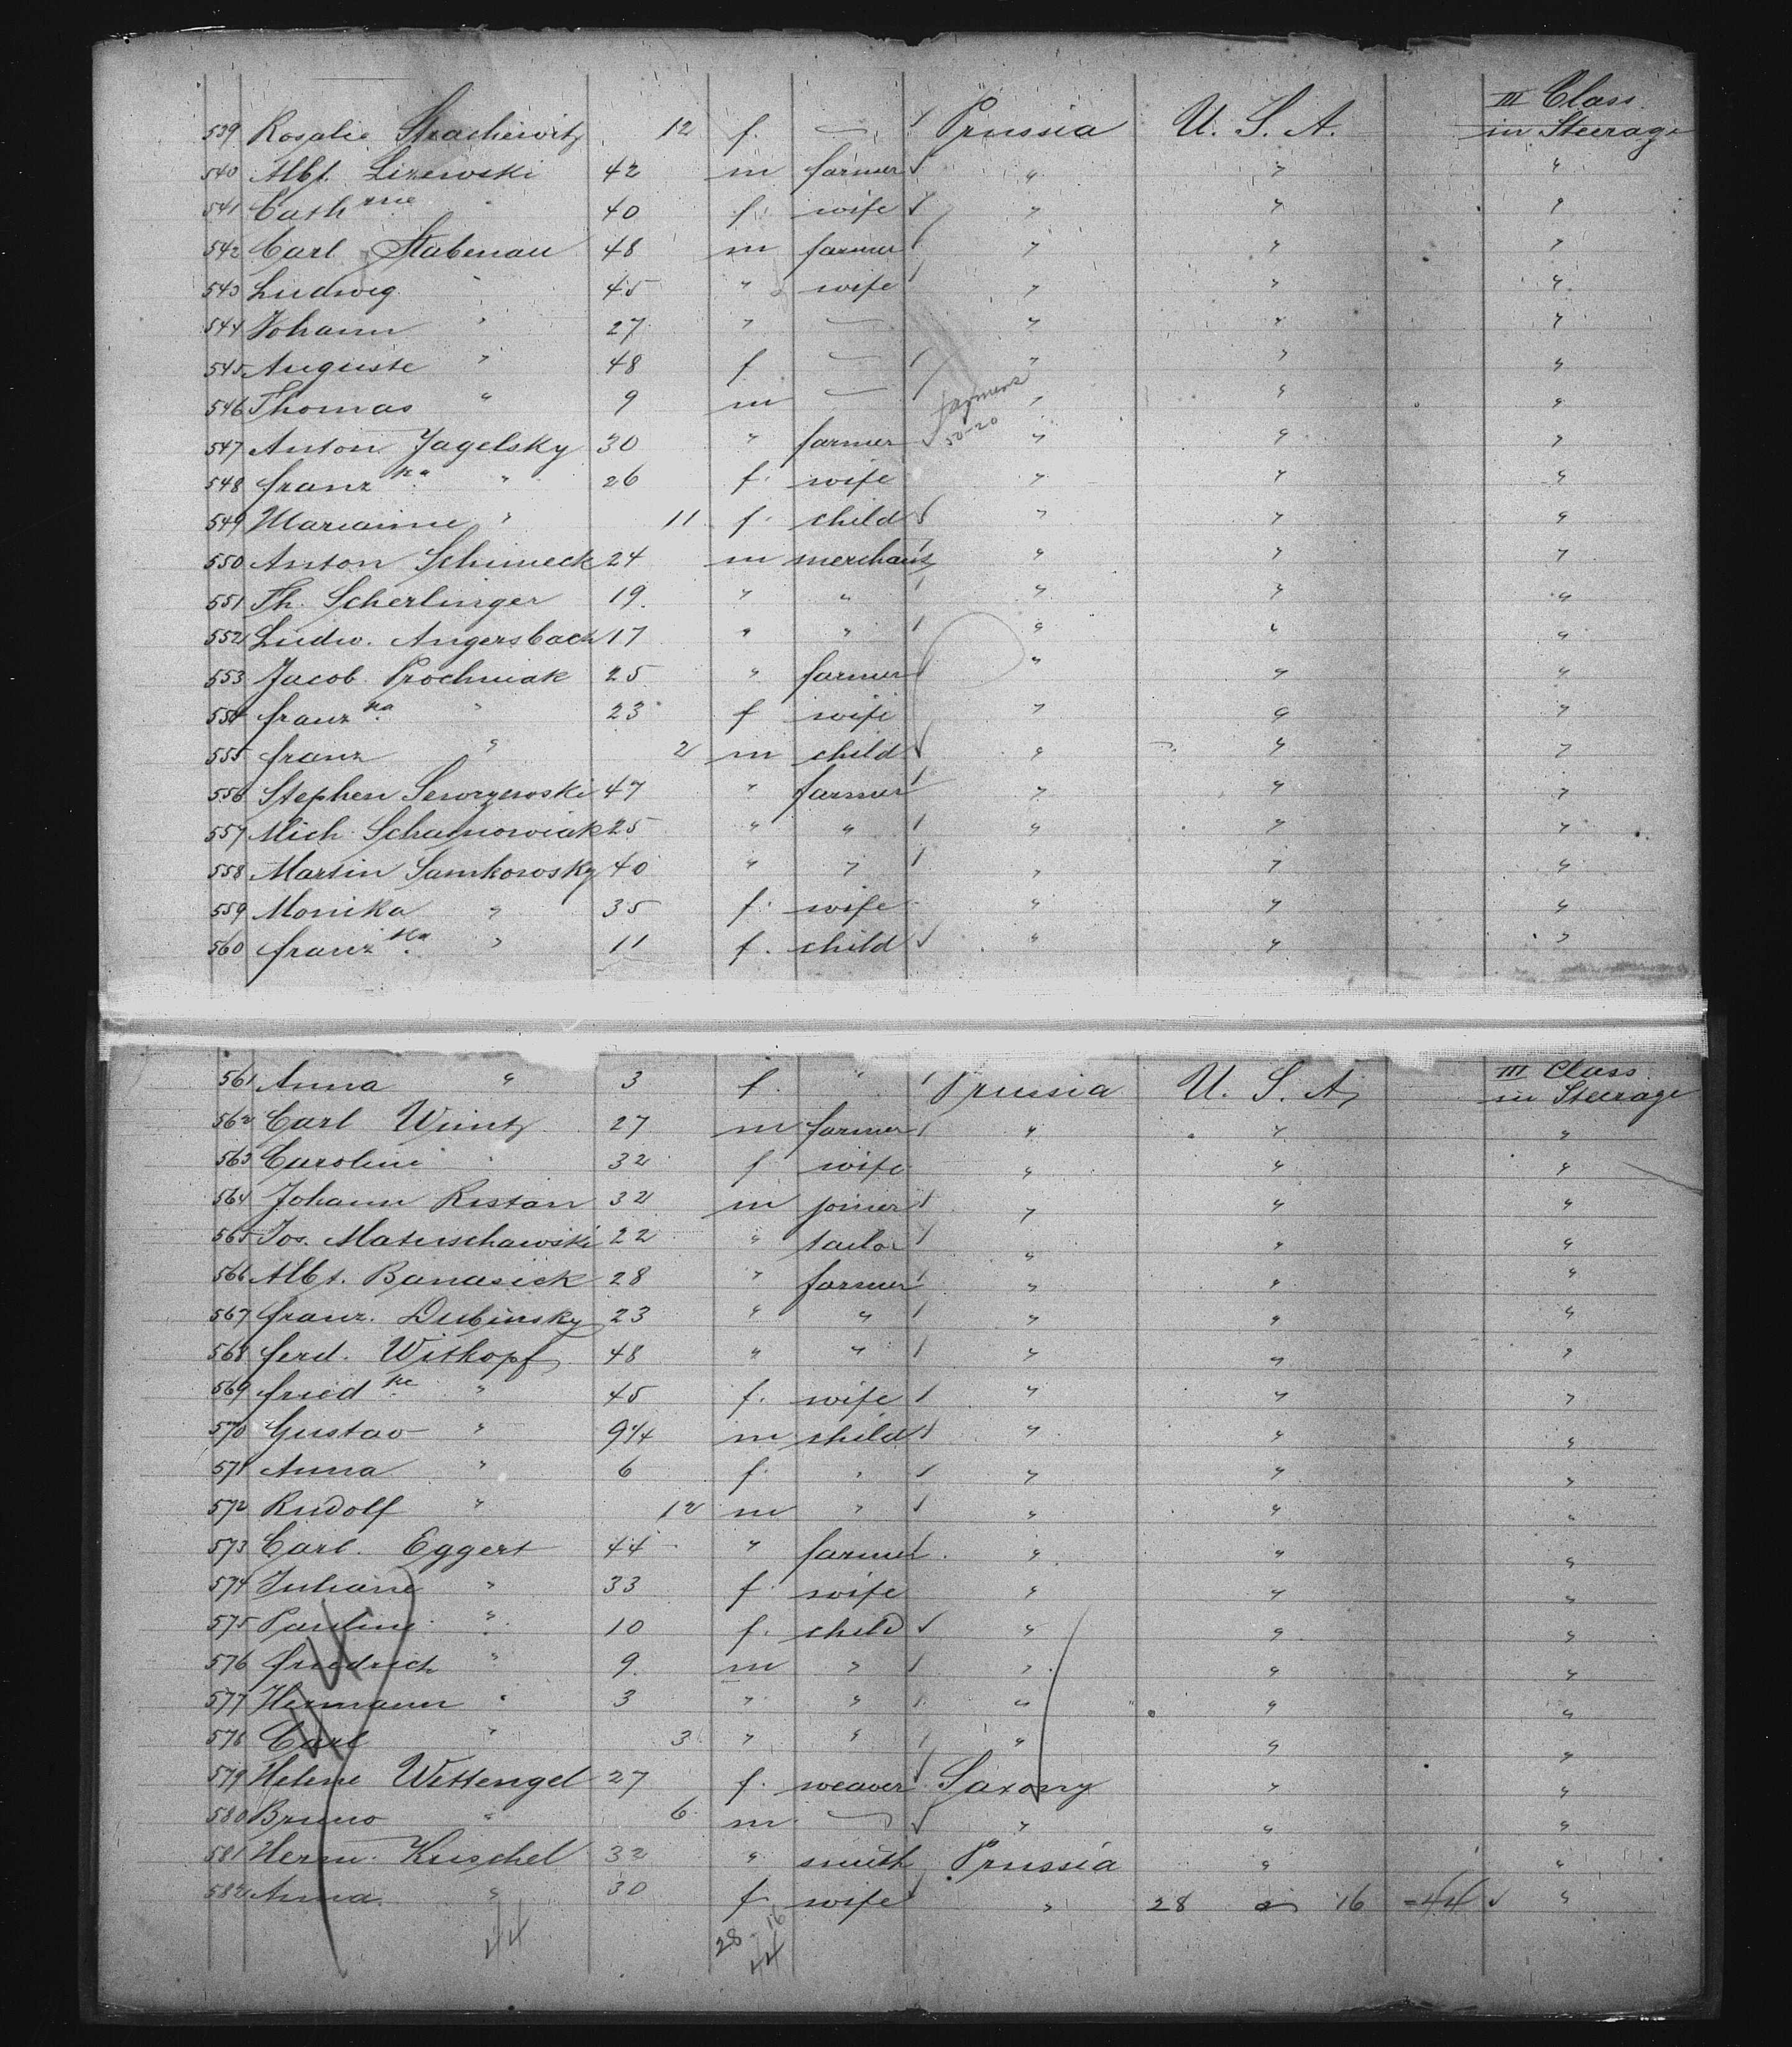 III Class
539 Rosalie Strachewitz 12 f. — Prussia U. S. A. in Steerage
540 Albt. Lizewski 42 m farmer " " "
541 Cath rne " 40 f. wife " " "
542 Carl Stabenau 48 m farmer " " "
543 Ludwig " 45 " wife " " "
544 Johann " 27 " — " " "
545 Auguste " 48 f — " " "
546 Thomas " 9 m — " " "
farmers
50-20
547 Anton Jagelsky 30 " farmer " " "
548 Franz ka " 26 f. wife " " "
549 Marianne " 11 f. child " " "
550 Anton Schimeck 24 m merchant " " "
551 Th. Scherlinger 19 " " " " "
552 Ludw. Angersbach 17 " " " " "
553 Jacob Prochniak 25 " farmer " " "
554 Franz ka " 23 f wife " " "
555 Franz " 2 m child " " "
556 Stephen 47 " farmer " " "
557 Mich. 25 " " " " "
558 Martin Samkowsky 40 " " " " "
559 Monika " 35 f. wife " " "
560 Franz ka " 11 f. child " " "
III Class
561 Anna " 3 f. " Prussia U. S. A. in Steerage
562 Carl 27 m farmer " " "
563 Caroline " 32 f wife " " "
564 Johann Ristan 32 m joiner " " "
565 Jos. Materschawski 22 " tailor " " "
566 Albt. Banasick 28 " farmer " " "
567 Franz. Dubinsky 23 " " " " "
568 Ferd. Witkopf 48 " " " " "
569 Fried ke " 45 f. wife " " "
570 Gustav " 9 1/4 m child " " "
571 Anna " 6 f. " " " "
572 Rudolf " 12 m " " " "
573 Carl Eggert 44 " farmer " " "
574 Juliane " 33 f. wife " " "
575 Pauline " 10 f. child " " "
576 Friedrich " 9 m " " " "
577 Hermann " 3 " " " " "
578 Carl " 3 " " " " "
579 Helene Wettengel 27 f. weaver Saxony " "
580 Bruno " 6 m — " " "
581 Herm. Kuschel 32 " smith Prussia " "
582 Anna " 30 f. wife " 28 16 =44 "
44 28 16
44